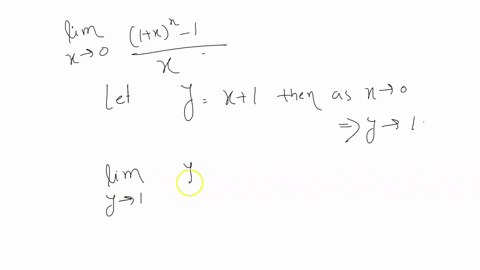 lim x→0 ((1+x)^n - 1) / x
Let y = x+1 then as x→0
⇒ y → 1.
lim y→1 y